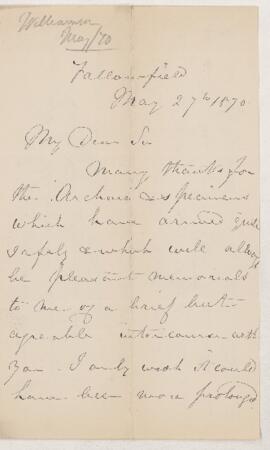 Williamson
May/70
Fallowfield
May 27th 1870
My Dear Sir
Many thanks for
the Orchard & specimens
which have arrived quite
safely & which will always
be pleasant memorials
to me of a brief but
agreable intercourse with
you. I only wish it could
have been more prolonged